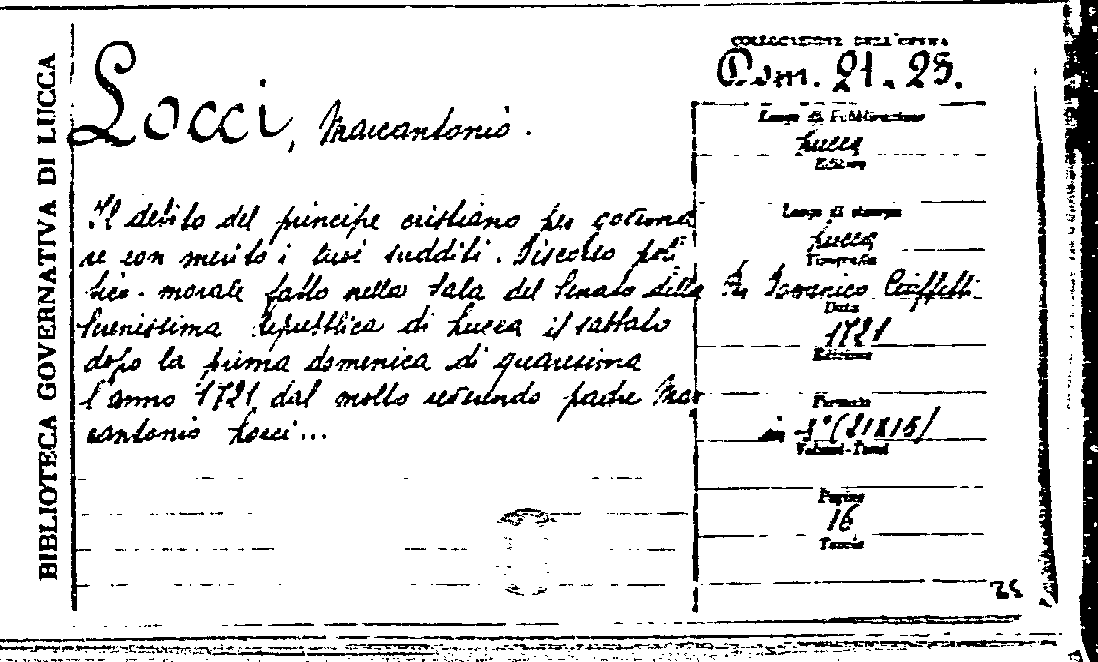 BIBLIOTECA GOVERNATIVA DI LUCCA
Locci, Marcantonio.
Il debito del principe cristiano per governa
re con merito i suoi sudditi. Discorso poli
tico-morale fatto nella sala del Senato della
Serenissima Repubblica di Lucca il sabbato
dopo la prima domenica di quaresima
l'anno 1721 dal molto reverendo padre Mar
cantonio Locci...
COLLOCAZIONE DELL'OPERA
21.25.
Luogo di Pubblicazione
Lucca
Editore
Luogo di stampa
Lucca
Tipografia
Domenico Ciuffetti
Data
1721
Edizione
Formato
in 4° (21x15)
Volumi-Tomi
Pagine
16
Tavole
25